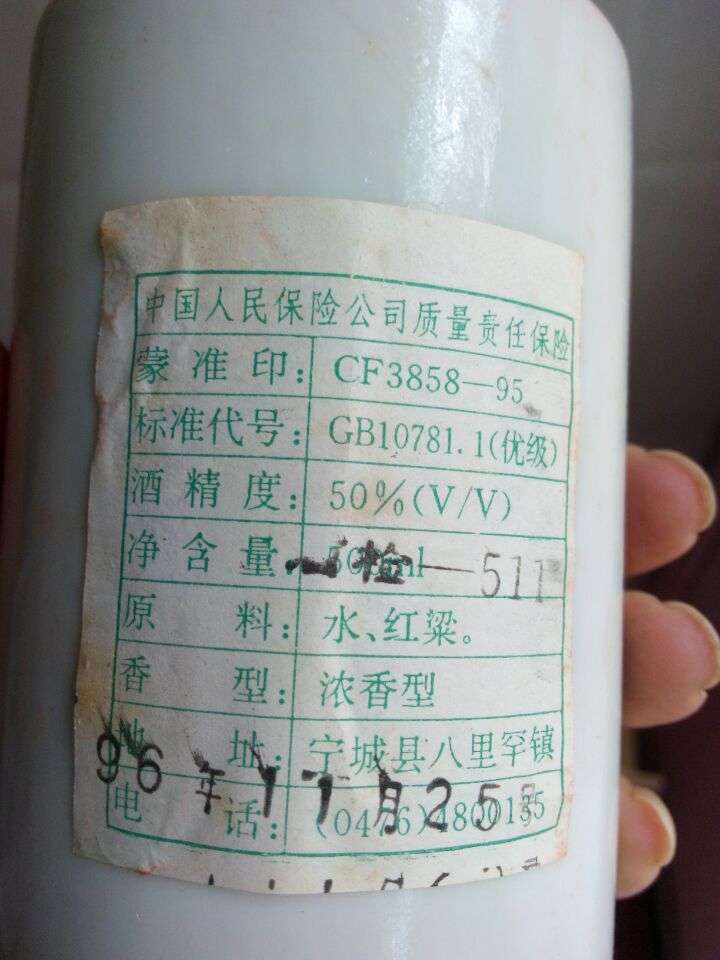 中国人民保险公司质量责任保险
蒙准印: CF3858—95
标准代号: GB10781.1(优级)
酒精度: 50%(V/V)
净含量: 500ml
检—511
原料: 水、红粱。
香型: 浓香型
地址: 宁城县八里罕镇
96年11月25
电话: (0476)4800135